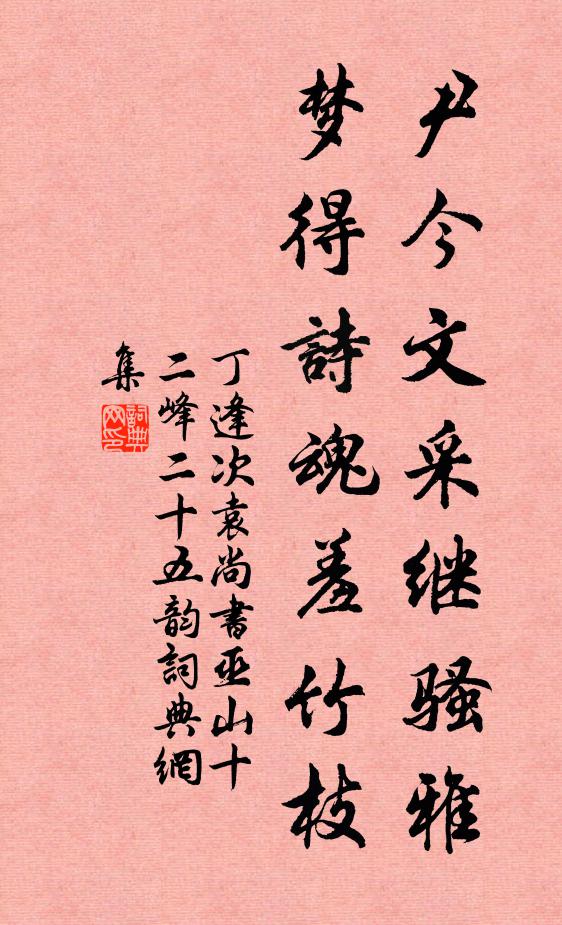 尹今文采继骚雅
梦得詩魂羞竹枝
丁逢次袁尚書巫山十
二峰二十五韵詞典網
集
詞典
网印